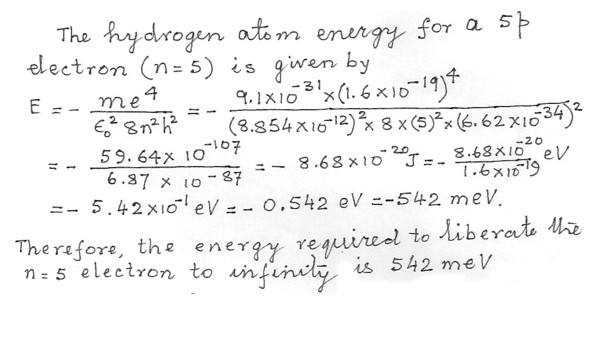 The hydrogen atom energy for a 5p
electron (n=5) is given by
E = - me⁴ / ε₀² 8n²h² = - 9.1×10⁻³¹×(1.6×10⁻¹⁹)⁴ / (8.854×10⁻¹²)²×8×(5)²×(6.62×10⁻³⁴)²
= - 59.64×10⁻¹⁰⁷ / 6.87×10⁻⁸⁷ = - 8.68×10⁻²⁰J = - 8.68×10⁻²⁰ / 1.6×10⁻¹⁹ eV
= - 5.42×10⁻¹ eV = - 0.542 eV = -542 meV.
Therefore, the energy required to liberate the
n=5 electron to infinity is 542 meV